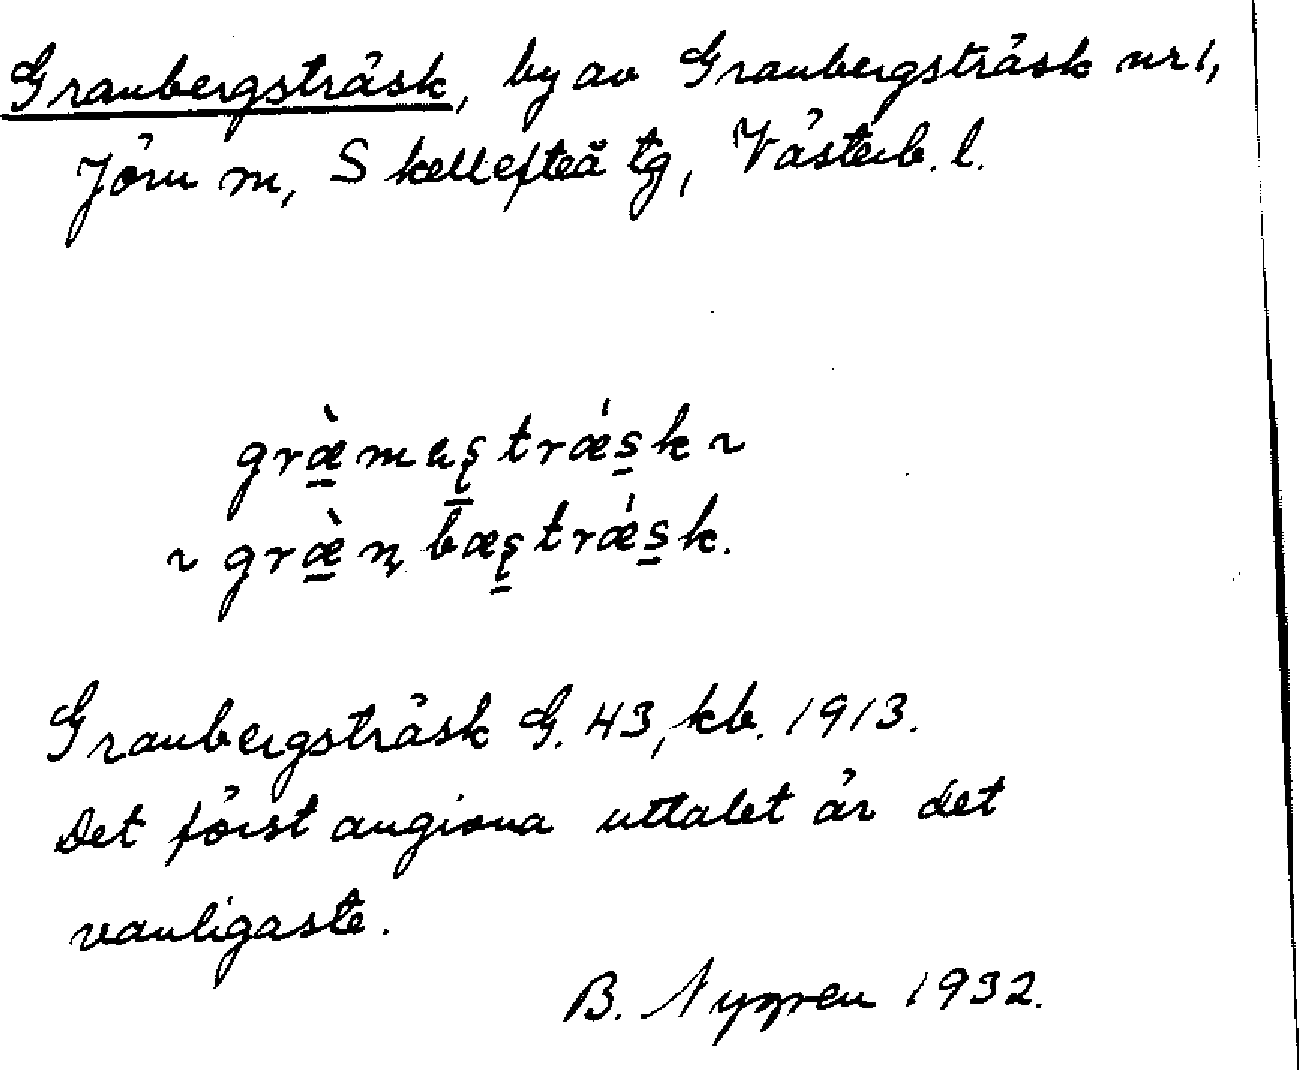 Granbergsträsk, by av Granbergsträsk nr 1,
Jörn sn, Skellefteå tg, Västerb. l.
græ̀mæştrǽsk ~
~ græ̀ņbæştrǽsk.
Granbergsträsk G. 43, kb. 1913.
Det först angivna uttalet är det
vanligaste.
B. Nygren 1932.